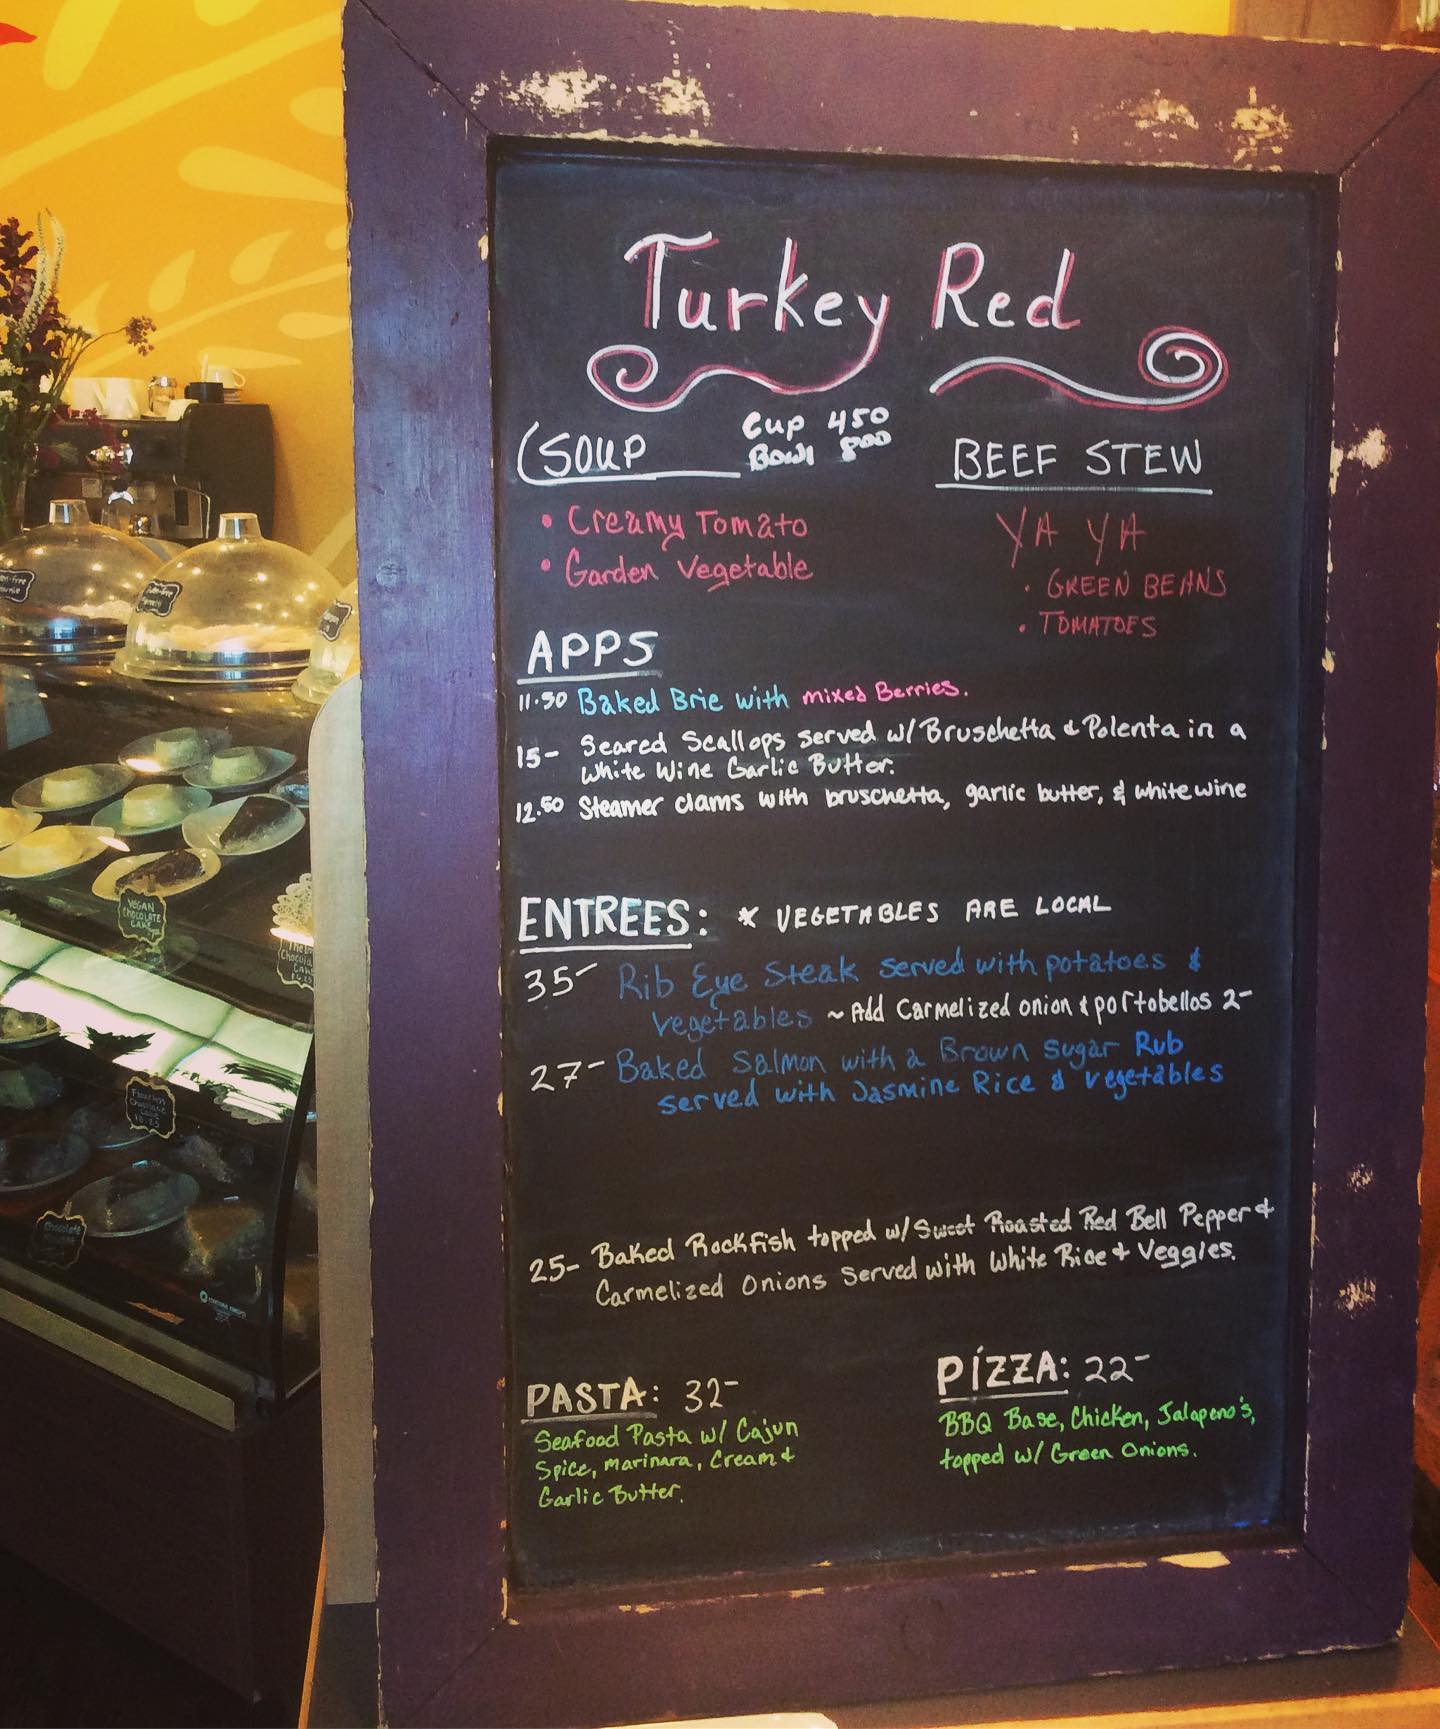 Turkey Red
SOUP
Cup 450
Bowl 800
• Creamy Tomato
• Garden Vegetable
BEEF STEW
YA YA
• GREEN BEANS
• TOMATOES
APPS
11.50 Baked Brie with mixed Berries.
15- Seared Scallops served w/ Bruschetta & Polenta in a
White Wine Garlic Butter.
12.50 Steamer clams with bruschetta, garlic butter, & white wine
ENTREES: * VEGETABLES ARE LOCAL
35- Rib Eye Steak served with potatoes &
vegetables ~ Add Carmelized onion & portobellos 2-
27- Baked Salmon with a Brown sugar Rub
served with Jasmine Rice & vegetables
25- Baked Rockfish topped w/ Sweet Roasted Red Bell Pepper &
Carmelized Onions Served with White Rice & Veggies.
PASTA: 32-
Seafood Pasta w/ Cajun
Spice, marinara, Cream &
Garlic Butter.
PIZZA: 22-
BBQ Base, Chicken, Jalapeno's,
topped w/ Green Onions.
VEGAN
CHOCOLATE
CAKE
Flourless
Chocolate
Cake
Chocolate